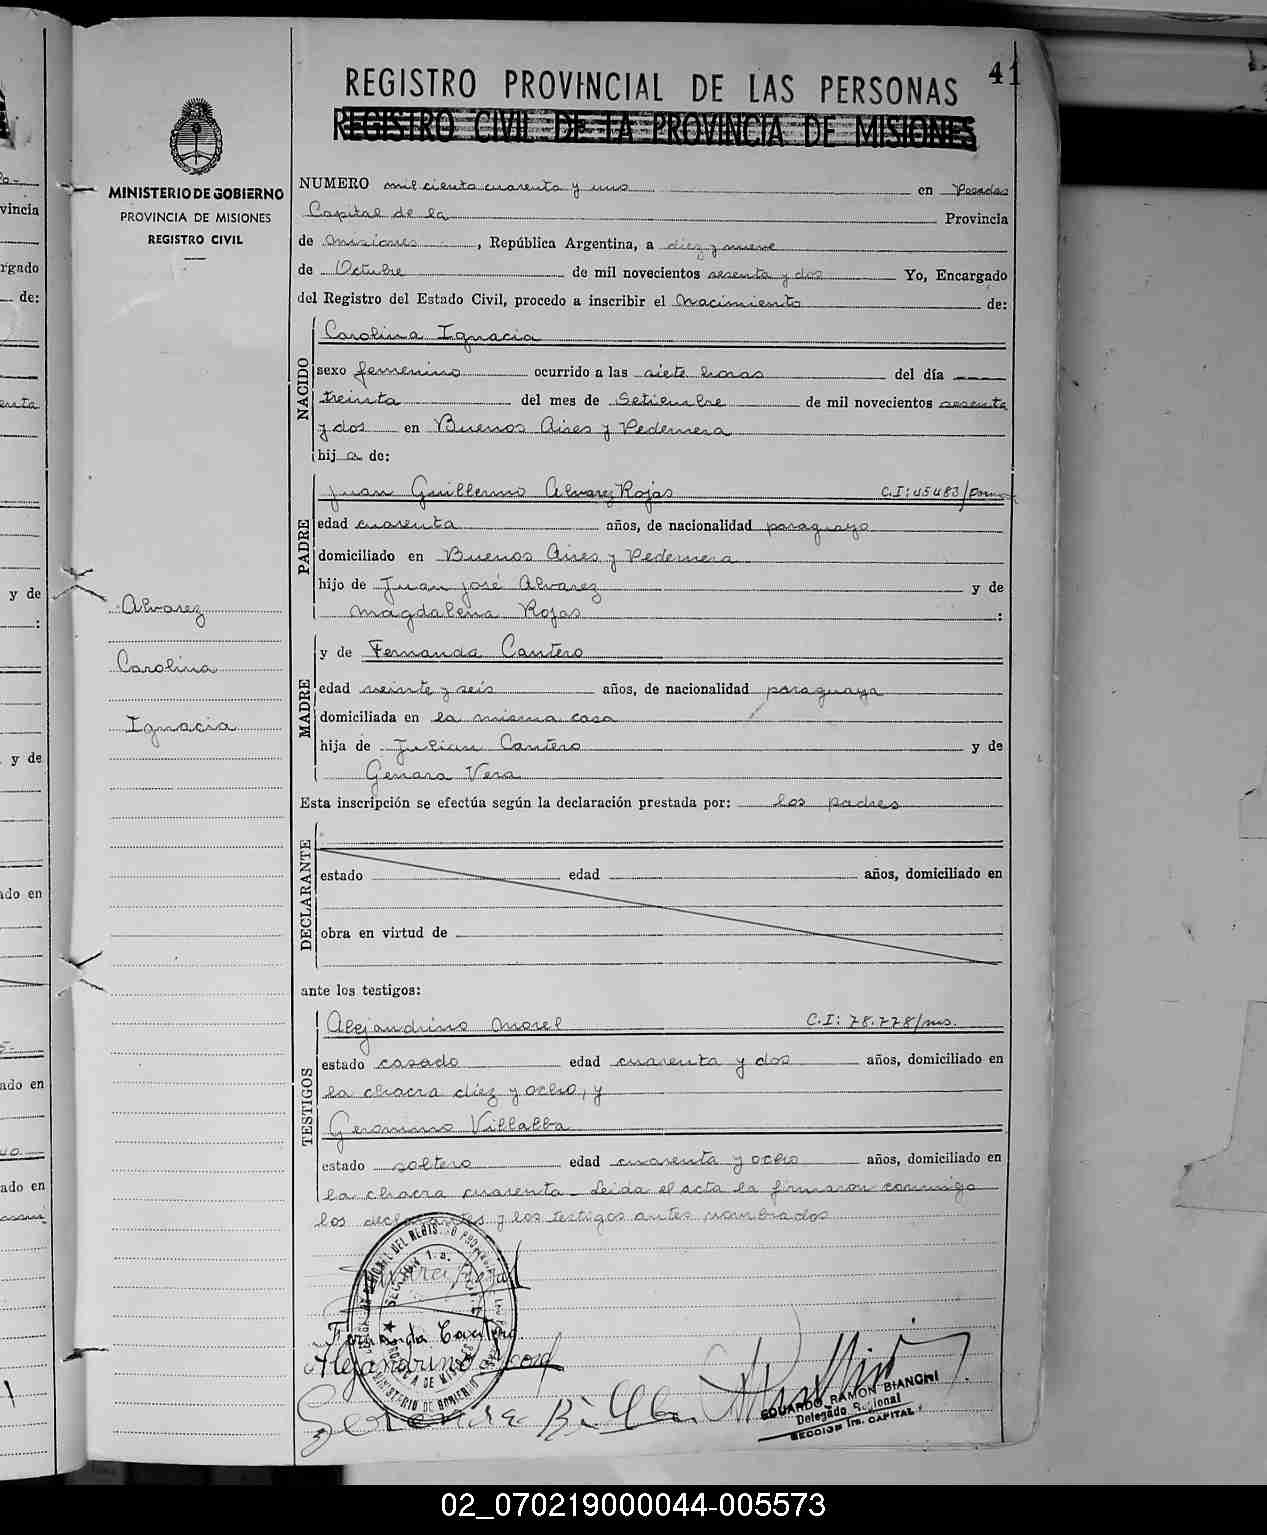 41
REGISTRO PROVINCIAL DE LAS PERSONAS
REGISTRO CIVIL DE LA PROVINCIA DE MISIONES
MINISTERIO DE GOBIERNO
PROVINCIA DE MISIONES
REGISTRO CIVIL
NUMERO mil ciento cuarenta y uno en Posadas
Capital de la Provincia
de Misiones, República Argentina, a diez y nueve
de Octubre de mil novecientos sesenta y dos Yo, Encargado
del Registro del Estado Civil, procedo a inscribir el Nacimiento de:
NACIDO
Carolina Ignacia
sexo femenino ocurrido a las siete horas del día
treinta del mes de Setiembre de mil novecientos sesenta
y dos en Buenos Aires y Pedernera
hija de:
PADRE
Juan Guillermo Alvarez Rojas C.I: 45483/
edad cuarenta años, de nacionalidad paraguayo
domiciliado en Buenos Aires y Pedernera
hijo de Juan José Alvarez y de
Magdalena Rojas :
Alvarez
Carolina
Ignacia
MADRE
y de Fernanda Cantero
edad veinte y seis años, de nacionalidad paraguaya
domiciliada en la misma casa
hija de Julian Cantero y de
Genara Vera
Esta inscripción se efectúa según la declaración prestada por: los padres
DECLARANTE
estado edad años, domiciliado en
obra en virtud de
ante los testigos:
TESTIGOS
Alejandrino Morel C.I: 78.778/ms.
estado casado edad cuarenta y dos años, domiciliado en
la chacra diez y ocho, y
Geronimo Villalba
estado soltero edad cuarenta y ocho años, domiciliado en
la chacra cuarenta - Leida el acta la firmaron conmigo
los declarantes y los testigos antes nombrados
Fernanda Cantero
Alejandrino Morel
EDUARDO RAMON BIANCHI
Delegado Regional
SECCION 1ra. CAPITAL
02_070219000044-005573